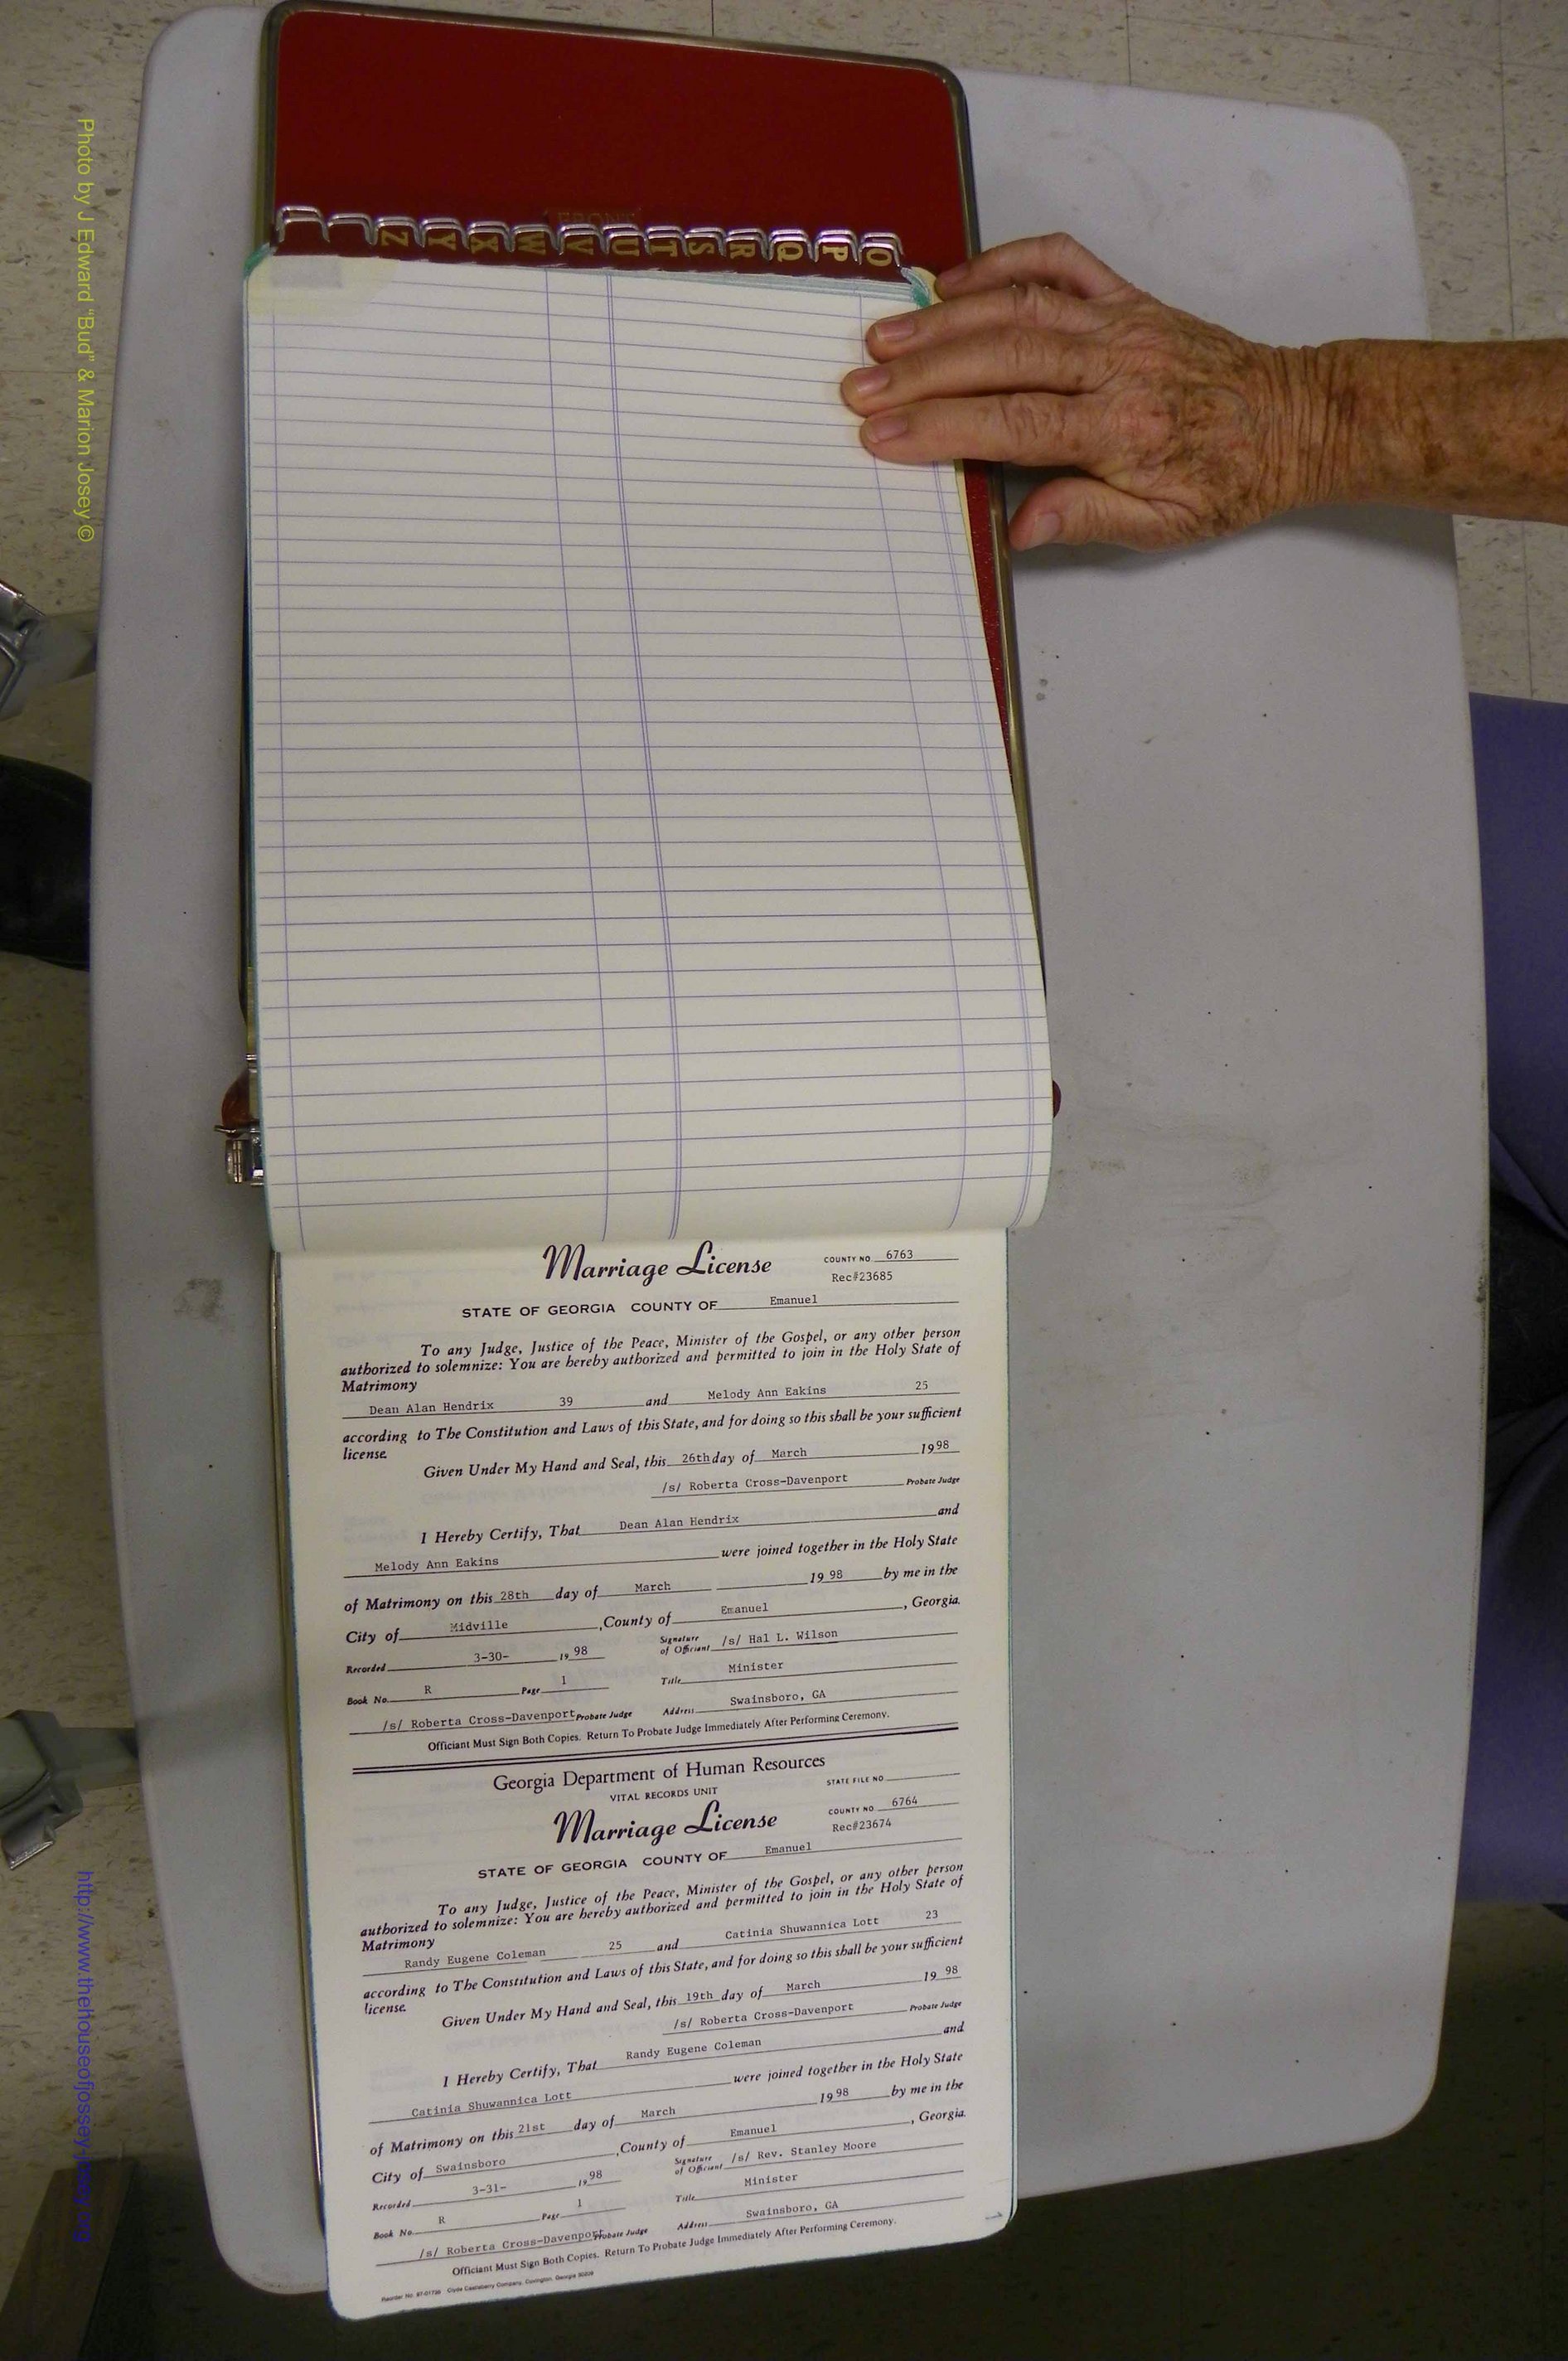 Photo by J Edward "Bud" & Marion Josey ©
FRONT
Z Y X W V U T S R Q P O
Marriage License
COUNTY NO. 6763
Rec#23685
STATE OF GEORGIA COUNTY OF Emanuel
To any Judge, Justice of the Peace, Minister of the Gospel, or any other person
authorized to solemnize: You are hereby authorized and permitted to join in the Holy State of
Matrimony
Dean Alan Hendrix 39 and Melody Ann Eakins 25
according to The Constitution and Laws of this State, and for doing so this shall be your sufficient
license.
Given Under My Hand and Seal, this 26th day of March 1998
/s/ Roberta Cross-Davenport Probate Judge
I Hereby Certify, That Dean Alan Hendrix and
Melody Ann Eakins were joined together in the Holy State
of Matrimony on this 28th day of March 1998 by me in the
City of Midville, County of Emanuel, Georgia.
Recorded 3-30- 1998 Signature of Officiant /s/ Hal L. Wilson
Book No. R Page 1 Title Minister
/s/ Roberta Cross-Davenport Probate Judge Address Swainsboro, GA
Officiant Must Sign Both Copies. Return To Probate Judge Immediately After Performing Ceremony.
Georgia Department of Human Resources
VITAL RECORDS UNIT
STATE FILE NO.
Marriage License
COUNTY NO. 6764
Rec#23674
STATE OF GEORGIA COUNTY OF Emanuel
To any Judge, Justice of the Peace, Minister of the Gospel, or any other person
authorized to solemnize: You are hereby authorized and permitted to join in the Holy State of
Matrimony
Randy Eugene Coleman 25 and Catinia Shuwannica Lott 23
according to The Constitution and Laws of this State, and for doing so this shall be your sufficient
license.
Given Under My Hand and Seal, this 19th day of March 1998
/s/ Roberta Cross-Davenport Probate Judge
I Hereby Certify, That Randy Eugene Coleman and
Catinia Shuwannica Lott were joined together in the Holy State
of Matrimony on this 21st day of March 1998 by me in the
City of Swainsboro, County of Emanuel, Georgia.
Recorded 3-31- 1998 Signature of Officiant /s/ Rev. Stanley Moore
Book No. R Page 1 Title Minister
/s/ Roberta Cross-Davenport Probate Judge Address Swainsboro, GA
Officiant Must Sign Both Copies. Return To Probate Judge Immediately After Performing Ceremony.
Reorder No. Clyde Castleberry Company, Covington, Georgia
1
http://www.thehouseofjossey-josey.org